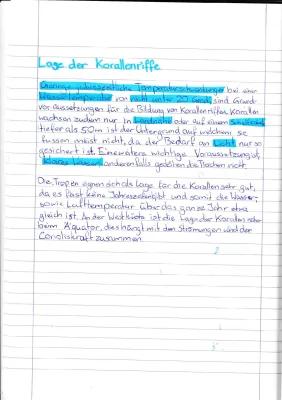 Lage der Korallenriffe
Geringe jahreszeitliche Temperaturschwankungen bei einer
Wassertemperatur von nicht unter 20 Grad, sind Grund-
voraussetzungen für die Bildung von Korallenriffen. Korallen
wachsen zudem nur in Landnähe oder auf einem
tiefer als 50m ist der Untergrund auf welchem sie
fussen meist nicht, da der Bedarf an Licht nur so
gesichert ist. Eine weitere wichtige Voraussetzung ist
klares Wasser, anderenfalls gedeihen die nicht.
Die Tropen eignen sich als Lage für die Korallen sehr gut,
da es fast keine Jahreszeiten gibt und somit die Wasser-,
sowie Lufttemperatur über das ganze Jahr etwa
gleich ist. An der Westküste ist die Lage der Korallen eher
beim Äquator, dies hängt mit den Strömungen und der
Corioliskraft zusammen.